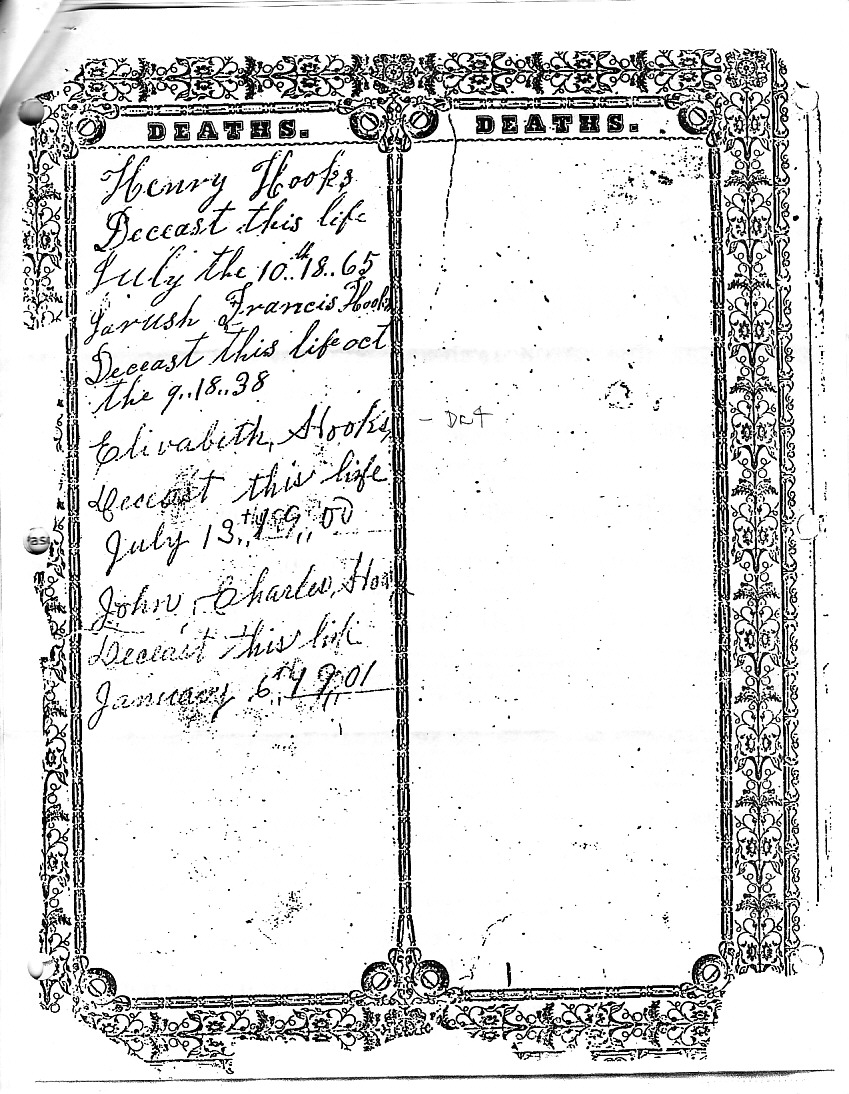 DEATHS.
Henry Hooks
Deceast this life
July the 10..th 18..65
Jarush Francis Hooks
Deceast this life oct
the 9..18..38
Elivabeth, Hooks,
Deceast this life
July 13,,th 19,,00
John, Charles, Hoo
Deceast this life
January 6,,th 19,,01
DEATHS.